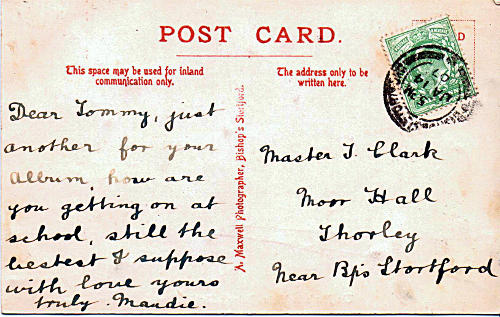 POST CARD.
This space may be used for inland
communication only.
The address only to be
written here.
Dear Tommy, just
another for your
Album, how are
you getting on at
school, still the
bestest I suppose
with love yours
truly. Maudie.
A. Maxwell Photographer, Bishop's Stortford.
Master T. Clark
Moor Hall
Thorley
Near Bp's Stortford